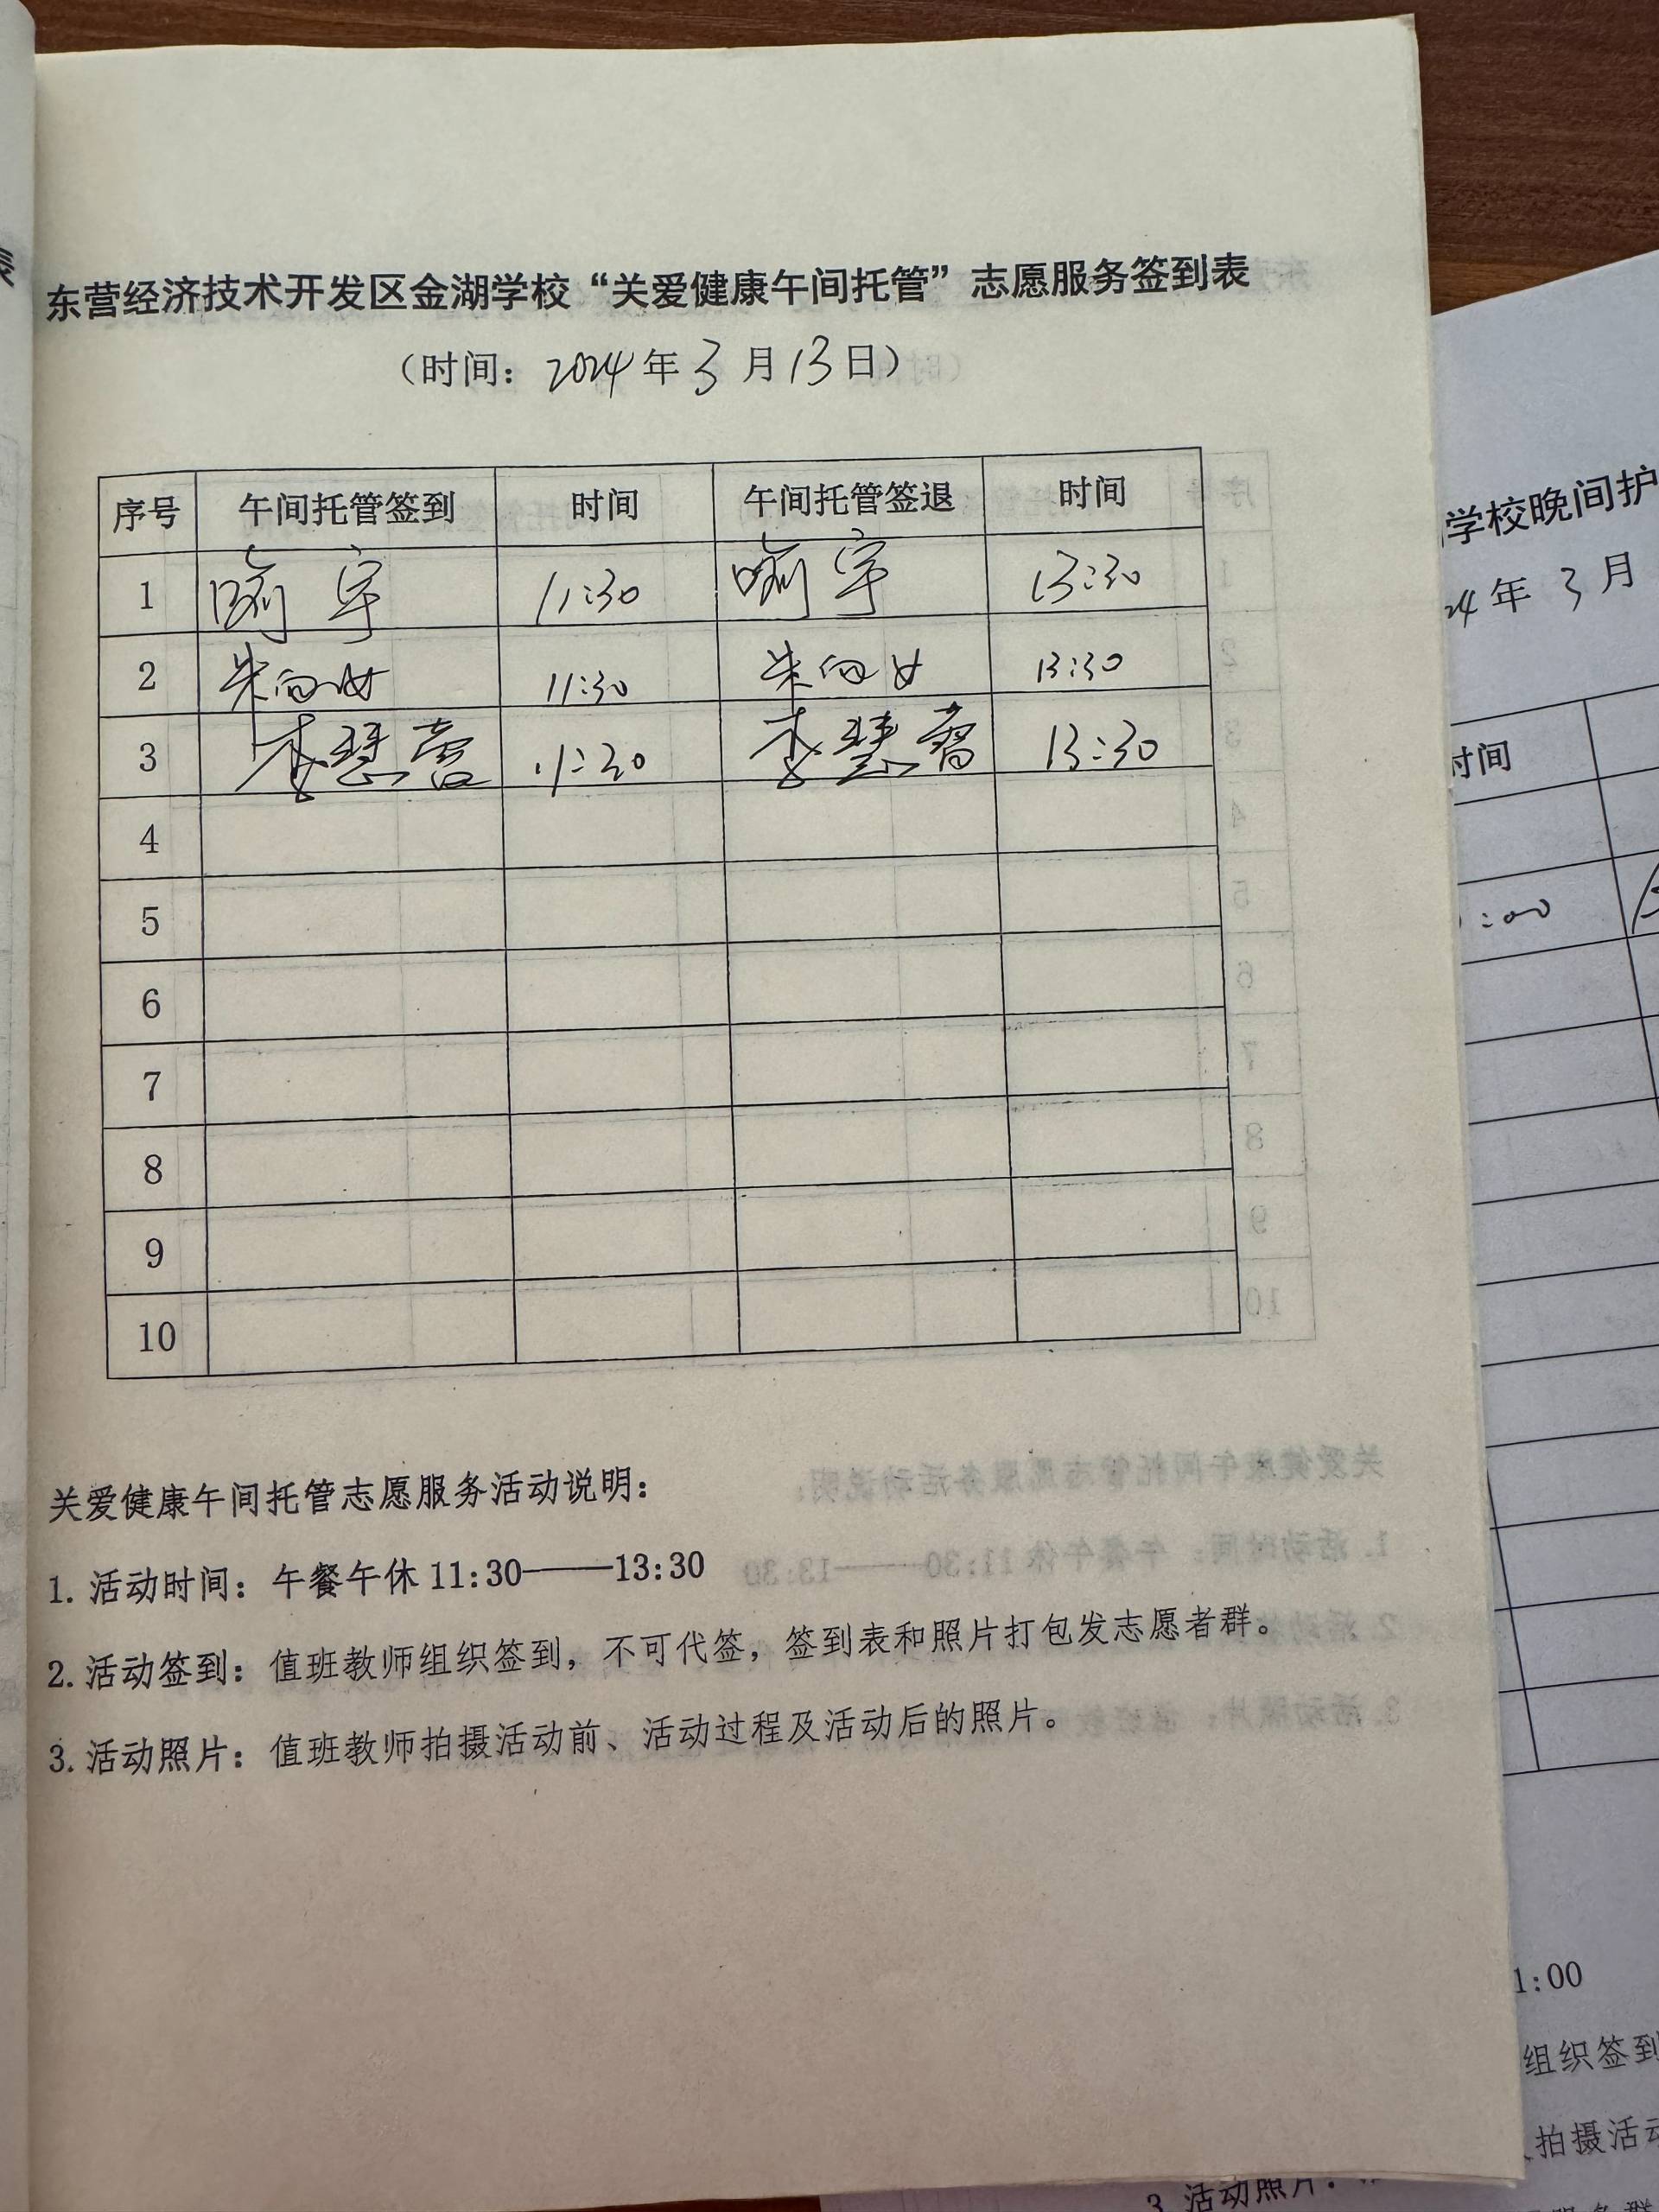 东营经济技术开发区金湖学校“关爱健康午间托管”志愿服务签到表
(时间: 2024年3月13日)
序号 午间托管签到 时间 午间托管签退 时间
1 喻宇 11:30 喻宇 13:30
2 朱 11:30 朱 13:30
3 李慧 11:30 李慧 13:30
4
5
6
7
8
9
10
关爱健康午间托管志愿服务活动说明:
1.活动时间: 午餐午休 11:30——13:30
2.活动签到: 值班教师组织签到, 不可代签, 签到表和照片打包发志愿者群。
3.活动照片: 值班教师拍摄活动前、活动过程及活动后的照片。
学校晚间护
24年3月
时间
:00
1:00
组织签到
拍摄活动
3.活动照片: